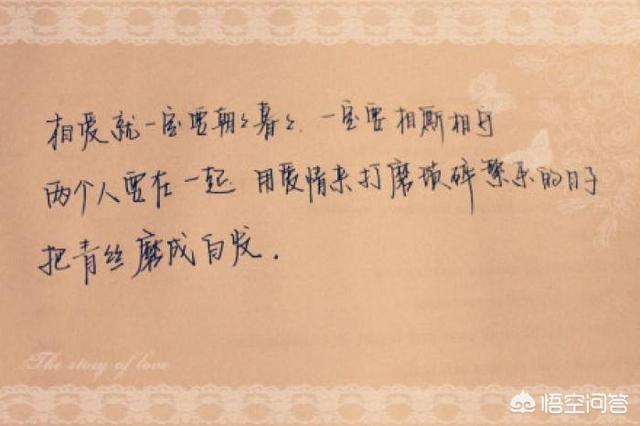 相爱就一定要朝々暮々.一定要相厮相守
两个人要在一起.用爱情来打磨琐碎繁杂的日子
把青丝磨成白发.
The story of love
悟空问答